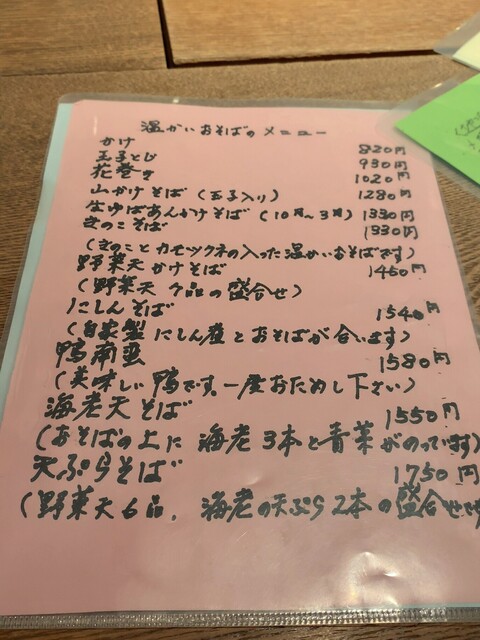 温かいおそばのメニュー
かけ 820円
玉子とじ 930円
花巻き 1020円
山かけそば (玉子入り) 1280円
生ゆばあんかけそば (10月〜3月) 1330円
きのこそば 1330円
(きのことカモツクネの入った温かいおそばです)
野菜天かけそば 1450円
(野菜天7品の盛合せ)
にしんそば 1540円
(自家製にしん煮とおそばが合います)
鴨南蛮 1580円
(美味しい鴨です。一度おためし下さい)
海老天そば 1550円
(おそばの上に海老3本と青菜がのっています)
天ぷらそば 1750円
(野菜天6品、海老の天ぷら2本の盛合せです